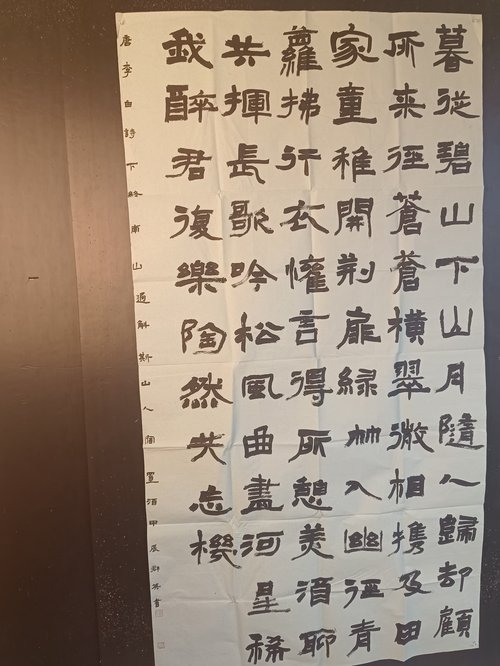 暮從碧山下山月隨人歸却顧
所来徑蒼蒼橫翠微相携及田
家童稚開荆扉緑竹入幽徑青
蘿拂行衣懽言得所憩美酒聊
共揮長歌吟松風曲盡河星稀
我醉君復樂陶然共忘機
唐李白詩下終南山過斛斯山人宿置酒甲辰書